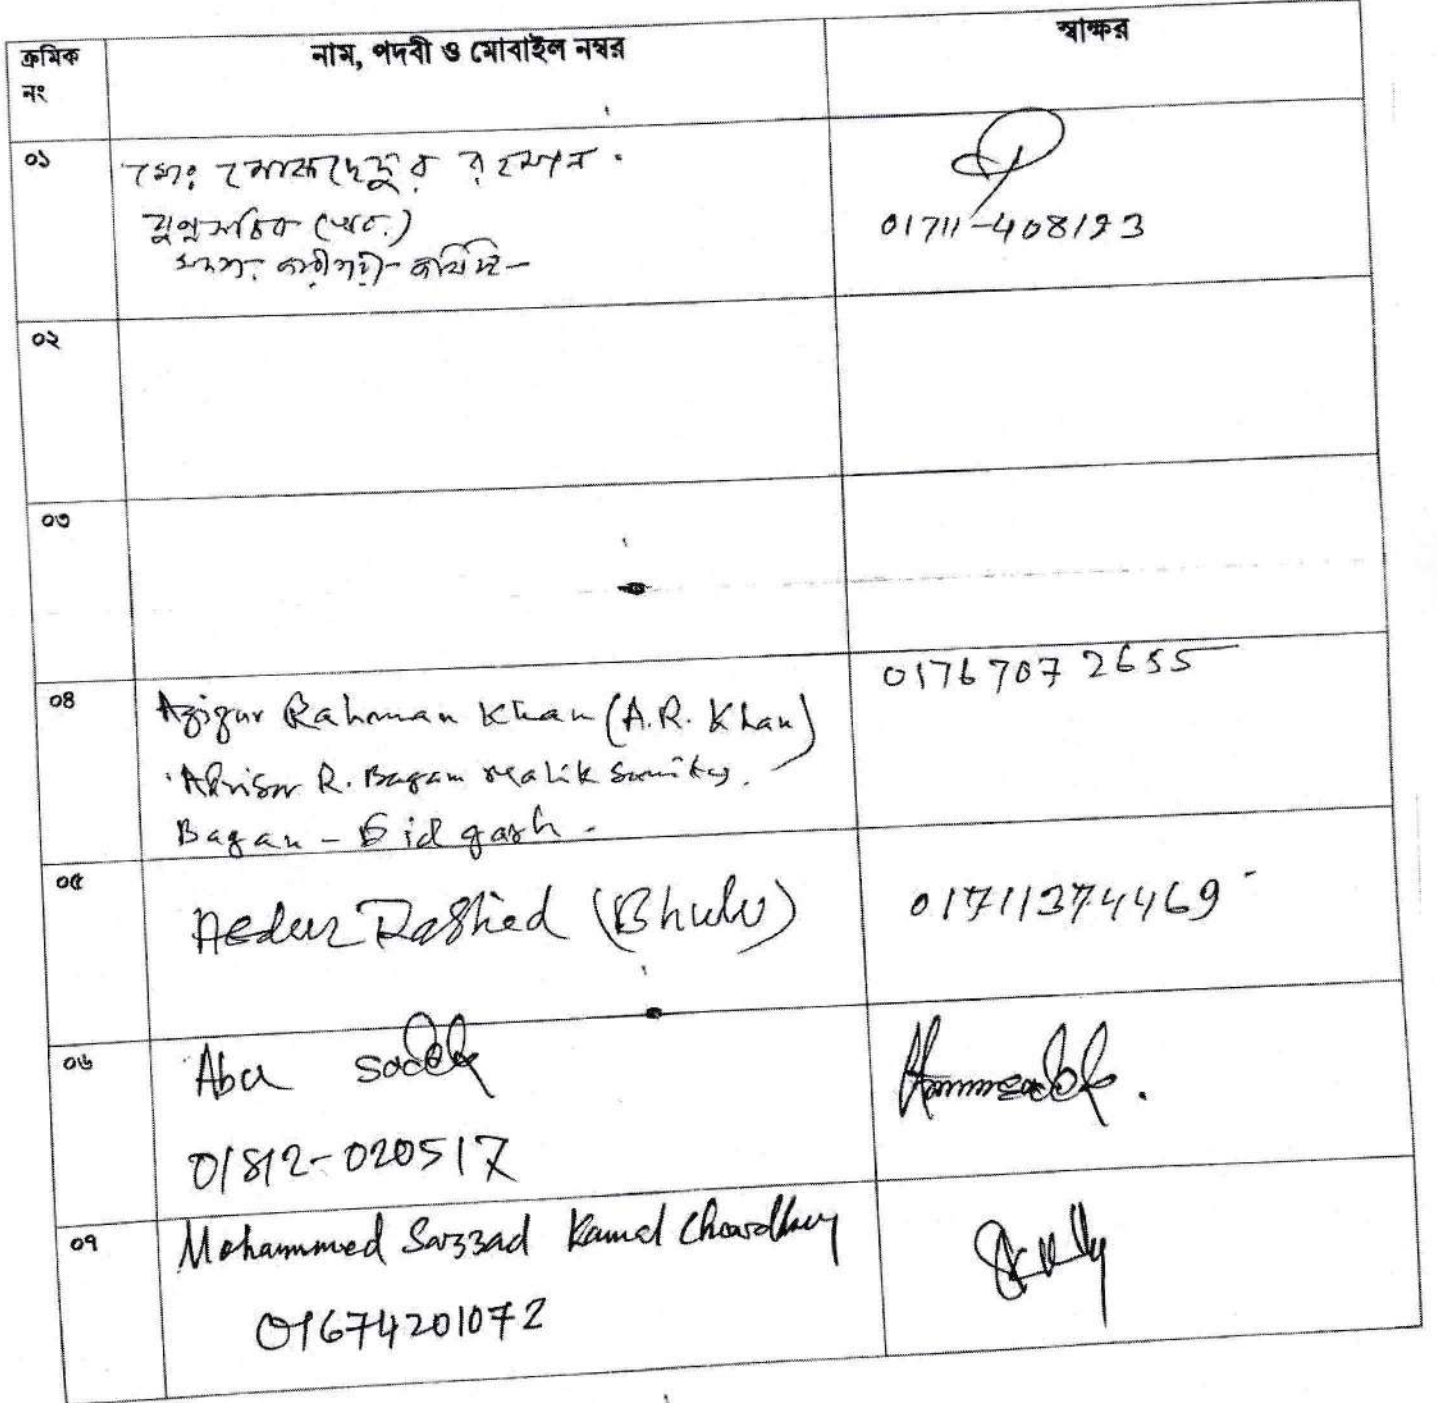 ক্রমিক নং
নাম, পদবী ও মোবাইল নম্বর
স্বাক্ষর
০১
মোঃ রহমান
যুগ্মসচিব (অব.)
01711-408123
০২
০৩
০৪
Azizur Rahman Khan (A.R. Khan)
Advisor R. Bagan Malik Samity.
Bagan - Eidgarh -
01767072655
০৫
Rashied (Bhulu)
01711374469
০৬
Abu Sadek
01812-020517
০৭
Mohammed Sazzad Kamal Chowdhury
01674201072